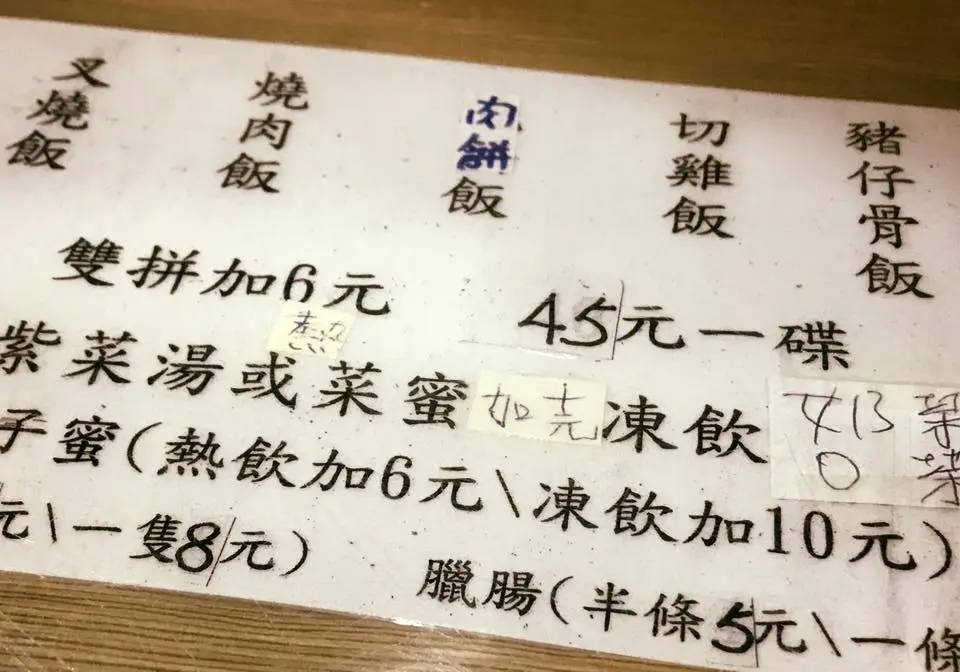 叉燒飯
燒肉飯
肉餅飯
切雞飯
豬仔骨飯
雙拼加6元
45元一碟
熱
紫菜湯或菜蜜 加 凍飲
子蜜(熱飲加6元\凍飲加10元)
元\一隻8元)
臘腸(半條5元\一條